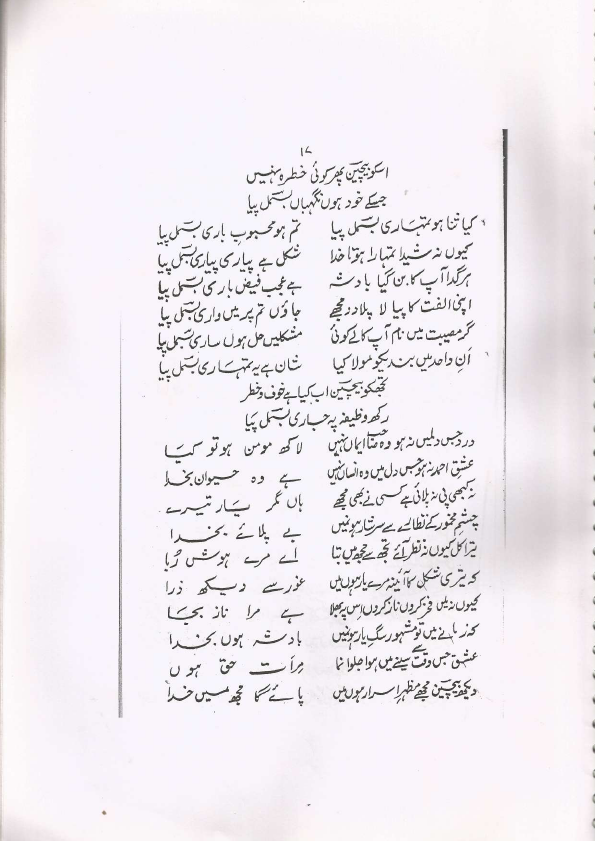 ۱۷
اسکو بیچین پھر کوئی خطرہ نہیں
جسکے خود ہوں نگہباں بسمل پیا
کیا ثنا ہو تمہاری بسمل پیا تم ہو محبوب باری بسمل پیا
کیوں نہ شیدا تمہارا ہوتا خدا شکل ہے پیاری پیاری بسمل پیا
ہر گدا آپ کا بن گیا بادشہ ہے عجب فیض باری بسمل پیا
اپنی الفت کا پیالا پلا دو مجھے جاؤں تم پر میں واری بسمل پیا
گر مصیبت میں نام آپ کا لے کوئی مشکلیں حل ہوں ساری بسمل پیا
آنِ واحد میں بندیکو مولا کیا شان ہے یہ تمہاری بسمل پیا
تجھکو بیچین اب کیا ہے خوف و خطر
رکھ وظیفہ یہ جاری بسمل پیا
درد جس دلمیں نہ ہو وہ صاحب ایماں نہیں لاکھ مومن ہو تو کیا
عشق احمد نہ ہو جس دل میں وہ انساں نہیں ہے وہ حیوان بخدا
نہ کبھی پی نہ پلائی ہے کسی نے بھی مجھے ہاں مگر یار تیرے
چشم مخمور کے نظالے سے سرشار ہونمیں بے پلائے بخدا
تیرا کل کیوں نہ نظر آئے تجھے مجھمیں بتا اے مرے ہوش رُبا
کہ تیری شکل کا آئینہ مرے یار ہوں میں غور سے دیکھ ذرا
کیوں نہ میں فخر کروں ناز کروں اس پہ بھلا ہے مرا ناز بجا
کہ زمانے میں تو مشہور سگِ یار ہونمیں بادشہ ہوں بخدا
عشق جس وقت سے سینے میں ہوا جلوا نما مرأت حق ہوں
دیکھ بیچین مجھے مظہر اسرار ہوں میں پائے گا مجھ میں خدا